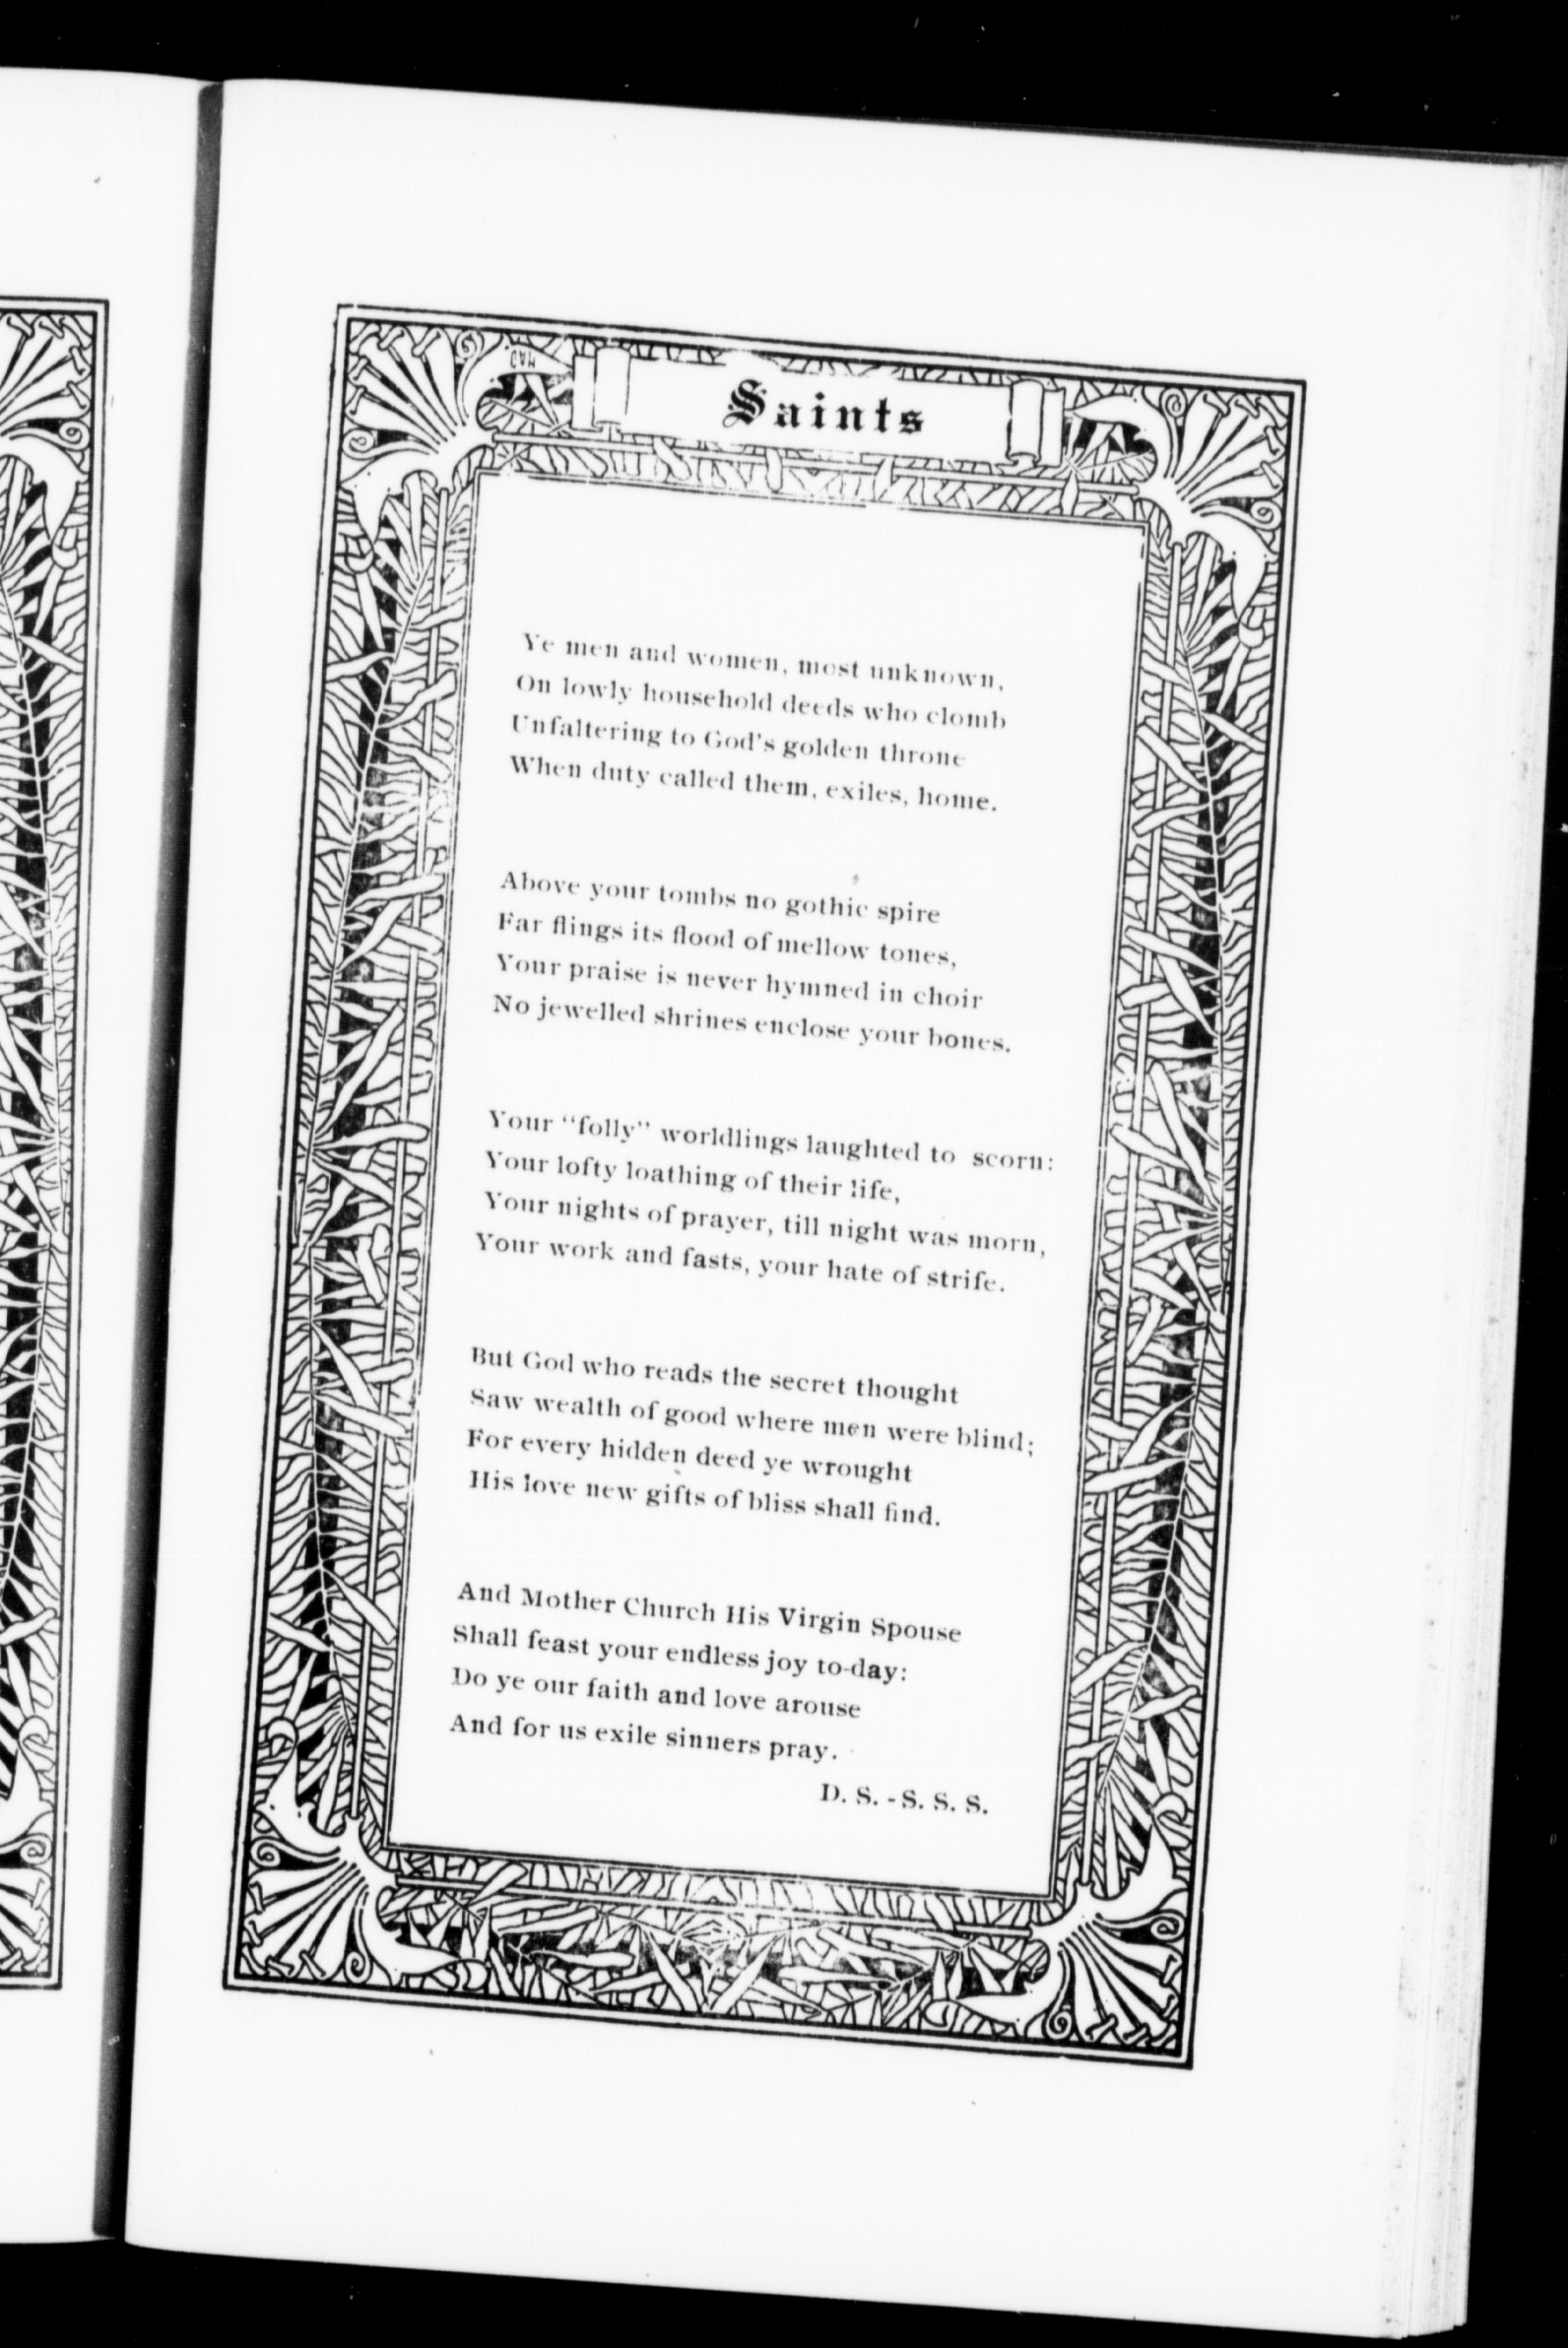 Saints
Ye men and women, most unknown,
On lowly household deeds who clomb
Unfaltering to God's golden throne
When duty called them, exiles, home.
Above your tombs no gothic spire
Far flings its flood of mellow tones,
Your praise is never hymned in choir
No jewelled shrines enclose your bones.
Your “folly” worldlings laughted to scorn:
Your lofty loathing of their life,
Your nights of prayer, till night was morn,
Your work and fasts, your hate of strife.
But God who reads the secret thought
Saw wealth of good where men were blind;
For every hidden deed ye wrought
His love new gifts of bliss shall find.
And Mother Church His Virgin Spouse
Shall feast your endless joy to-day:
Do ye our faith and love arouse
And for us exile sinners pray.
D. S. - S. S. S.